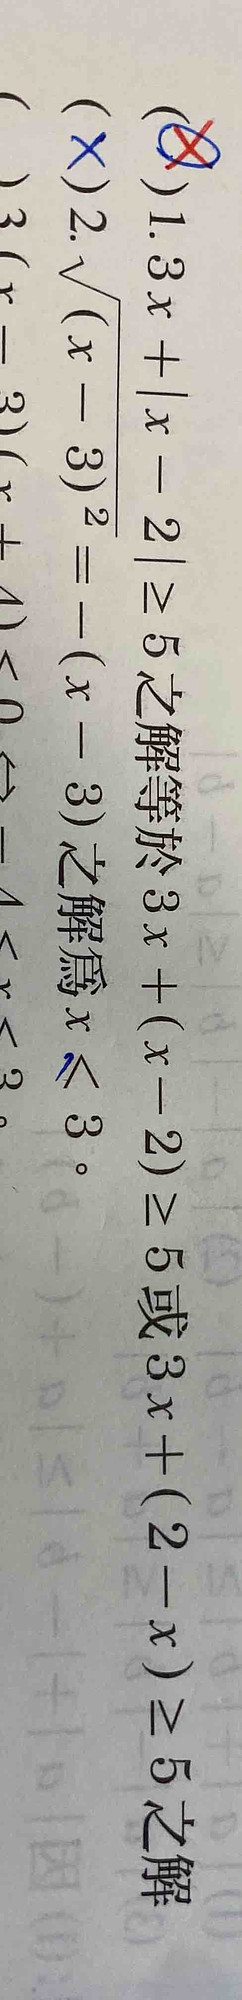 (×)1. 3x+|x－2|≥5之解等於3x+(x－2)≥5或3x+(2－x)≥5之解
(×)2. √(x－3)² =－(x－3)之解為x≤3。
( )3 (x－3)(x+4)<0⇔－4<x<3。